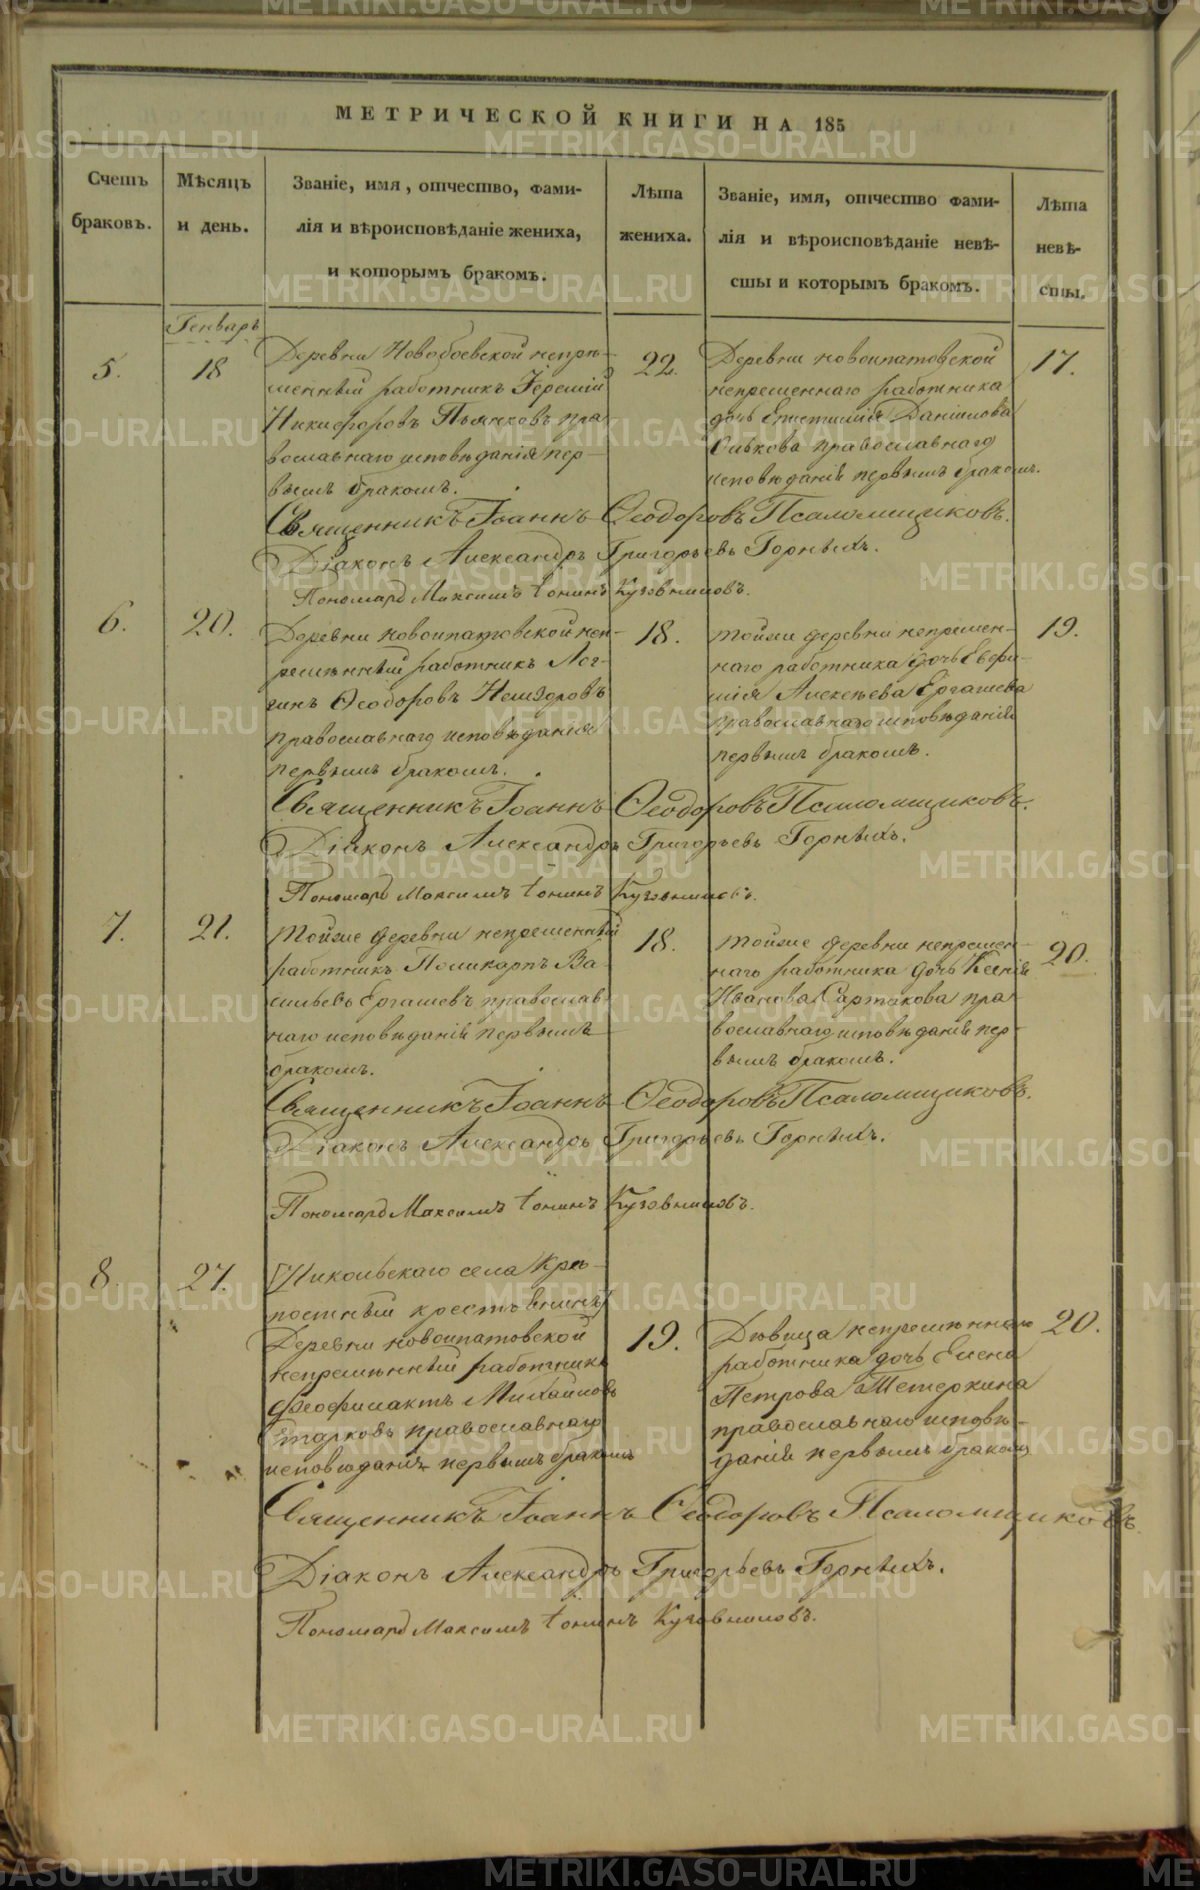 МЕТРИЧЕСКОЙ КНИГИ НА 185
Счетъ браковъ.
Мѣсяцъ и день.
Званіе, имя, отчество, фами-
лія и вѣроисповѣданіе жениха,
и которымъ бракомъ.
Лѣта жениха.
Званіе, имя, отчество фами-
лія и вѣроисповѣданіе невѣ-
сты и которымъ бракомъ.
Лѣта невѣ-
сты.
Генварь
5.
18
Деревни Новобоевской непрѣ-
менный работникъ Іеремій
Никифоровъ Пьянковъ пра
вославнаго исповѣданія пер-
вымъ бракомъ.
22.
Деревни новоипатовской
непременнаго работника
дочь Епистимія Даніилова
Сивкова православнаго
исповѣданія первымъ бракомъ.
17.
Священникъ Іоаннъ Ѳеодоровъ Псаломщиковъ.
Діаконъ Александръ Григорьевъ Горныхъ.
Пономарь Максимъ Іонинъ Кузовниковъ.
6.
20.
Деревни новоипатовской неп-
ремѣнный работникъ Лог-
гинъ Ѳеодоровъ
православнаго исповѣданія
первымъ бракомъ.
18.
Тойже деревни непремен-
наго работника дочь Евфи-
мія Алексѣева Ергашева
православнаго исповѣданія
первымъ бракомъ.
19.
Священникъ Іоаннъ Ѳеодоровъ Псаломщиковъ.
Діаконъ Александръ Григорьевъ Горныхъ.
Пономарь Максимъ Іонинъ Кузовниковъ.
7.
21.
Тойже деревни непременный
работникъ Поликарпъ Ва-
сильевъ Ергашевъ православ
наго исповѣданія первымъ
бракомъ.
18.
Тойже деревни непремен-
наго работника дочь Ксенія
Иванова Сартакова пра-
вославнаго исповѣданія пер-
вымъ бракомъ.
20.
Священникъ Іоаннъ Ѳеодоровъ Псаломщиковъ.
Діаконъ Александръ Григорьевъ Горныхъ.
Пономарь Максимъ Іонинъ Кузовниковъ.
8.
27.
Никольскаго села Крѣ-
постный крестьянинъ
Деревни новоипатовской
непремѣнный работникъ
Феофилактъ Михайловъ
Старковъ православнаго
исповѣданія первымъ бракомъ
19.
Дѣвица непремѣннаго
работника дочь Елена
Петрова Тетеркина
православнаго исповѣ-
данія первымъ бракомъ
20.
Священникъ Іоаннъ Ѳеодоровъ Псаломщиковъ
Діаконъ Александръ Григорьевъ Горныхъ.
Пономарь Максимъ Іонинъ Кузовниковъ.
METRIKI.GASO-URAL.RU